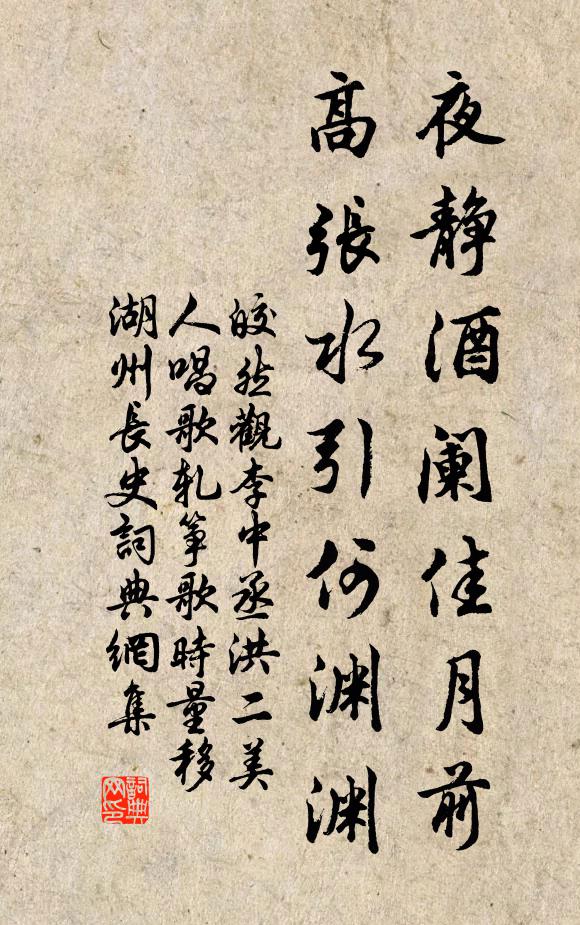 夜靜酒闌佳月前
高張水引何淵淵
皎然觀李中丞洪二美
人唱歌軋箏歌時量移
湖州長史詞典網集
詞典
网印